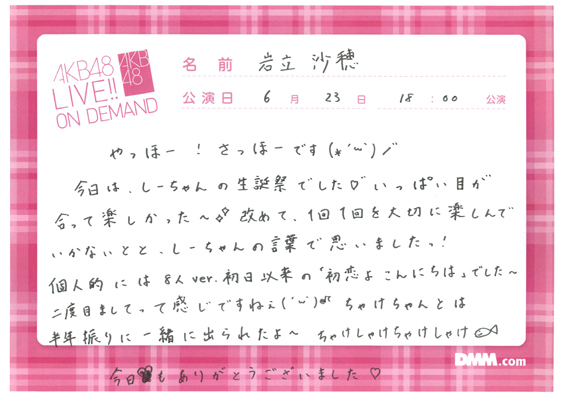 AKB48
LIVE!!
ON DEMAND
AKB
48
名前 岩立 沙穂
公演日 6月 23日 18:00 公演
やっほー！さっほーです(*´ω`)ノ
今日は、しーちゃんの生誕祭でした♡いっぱい目が
合って楽しかった〜✧ 改めて、1回1回を大切に楽しんで
いかないとと、しーちゃんの言葉で思いましたっ！
個人的には8人ver.初日以来の「初恋よこんにちは」でした〜
二度目ましてって感じですねぇ(´ω`)♪ ちゃけちゃんとは
半年振りに一緒に出られたよ〜 ちゃけしゃけちゃけしゃけ
今日もありがとうございました♡
DMM.com